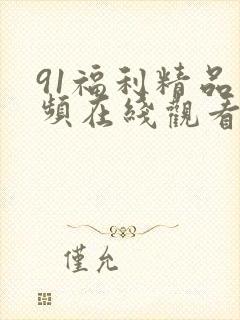 91福利精品
頻在綫觀看
僅允